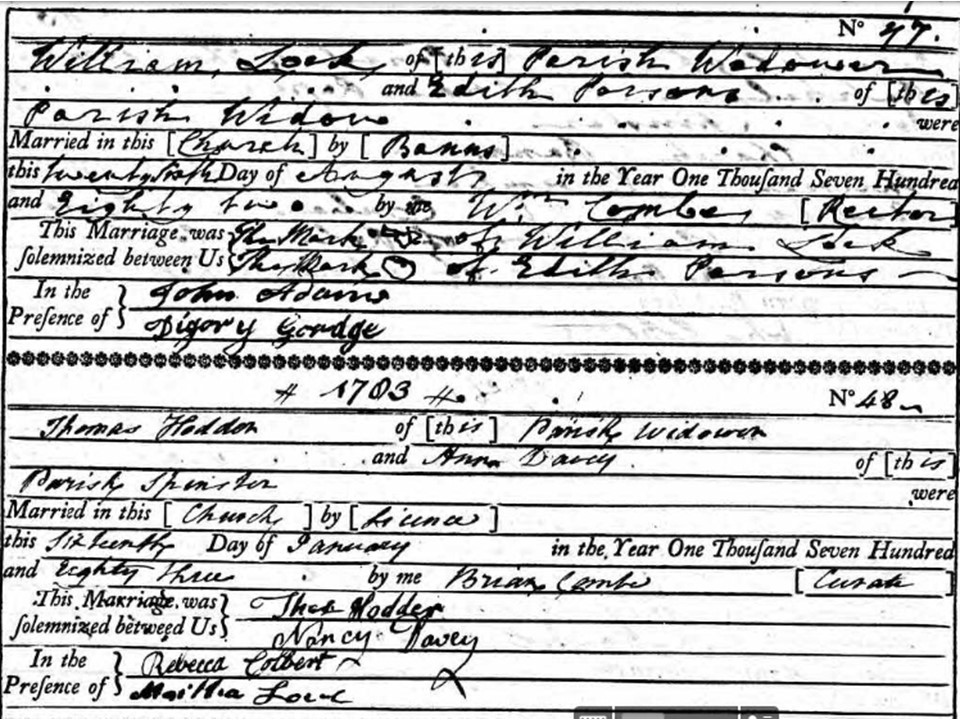 No 47.
William Lock of [this] Parish Widower
and Edith Parsons of [this]
Parish Widow were
Married in this [Church] by [Banns]
this twenty sixth Day of August in the Year One Thouſand Seven Hundred
and Eighty two by me Wm Combe [Rector]
This Marriage was The Mark of William Lock
ſolemnized between Us The Mark of Edith Parsons
In the John Adams
Preſence of Digory Gordge
# 1783 #. No 48
Thomas Hoddor of [this] Parish Widower
and Anna Davey of [this]
Parish Spinster were
Married in this [Church] by [Licence]
this Sixteenth Day of January in the Year One Thouſand Seven Hundred
and Eighty three by me Brian Combe [Curate]
This Marriage was Thos Hodder
ſolemnized between Us Nancy Davey
In the Rebecca Colbert
Preſence of Martha